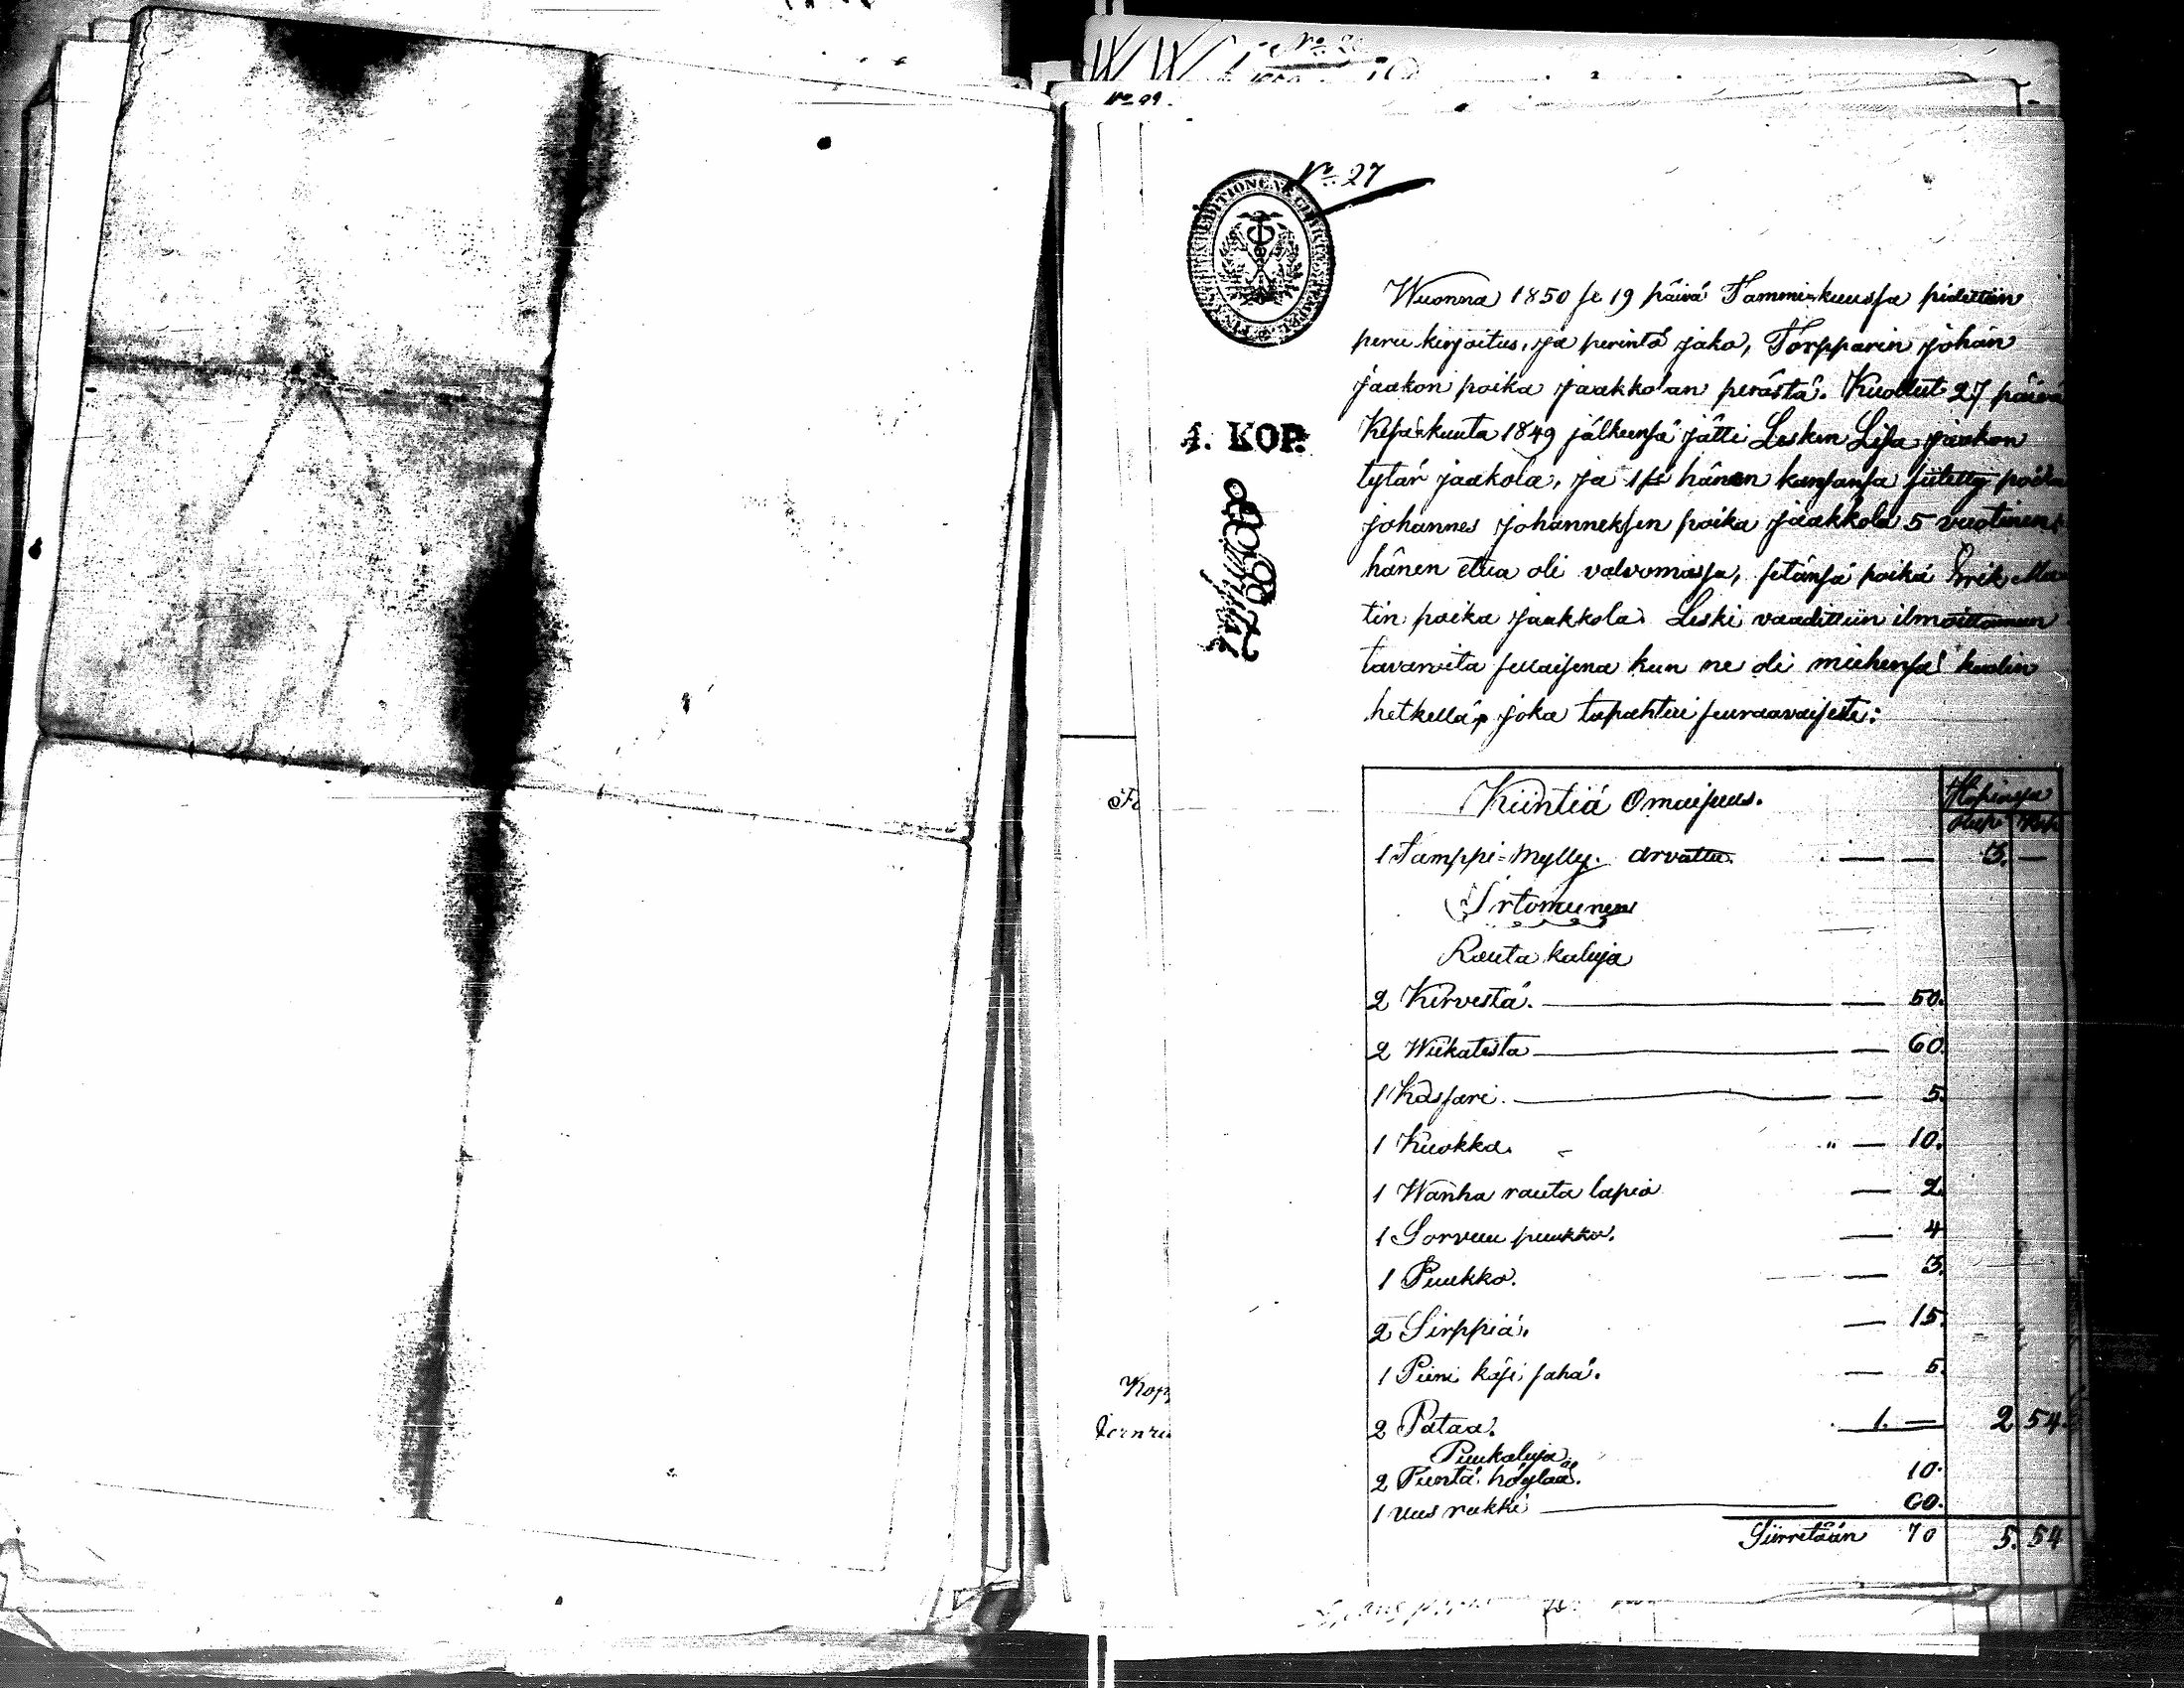 No 99.
No 27
4. KOP.
Wuonna 1850 se 19 päivä Tammi=kuussa pidettiin
peru kirjoitus, ja perintö jako, Torpparin johan
jaakon poika jaakkolan perästä. Kuollut 27 päivä
Kesä=kuuta 1849 jälkeensä jätti Lesken Lisa jaakon
tytär jaakola, ja 1 hänen kansansa siitetty poika
johannes johanneksen poika jaakkola 5 vuotinen
hänen etua oli valvomassa, setänsä poika Erik Ma
tin poika jaakkola. Leski vaadittiin ilmoittamaan
tavaroita sellaisena kun ne oli miehensä kuolin
hetkellä, joka tapahtui seuraavaisesti:
Kiintiä Omaisuus. Hopiassa
Rup: Kop
1 Tamppi=Mylly. arvattu. — — 3. —
Irtomunen
Rauta kaluja
2 Kirvestä. — — 50.
2 Wiikatesta — — 60.
1 Kassari. — — 5.
1 Kuokka. " — 10.
1 Wanha rauta lapio — 2.
1 Sorvuu puukko. — 4
1 Puukko. — 3.
2 Sirppiä. — 15.
1 Pieni käsi saha. — 5.
2 Pataa. 1. — 2 54.
Puukaluja.
2 Pientä höylää. 10.
1 uus rukki — 60.
Siirretään 70 5. 54
Kop